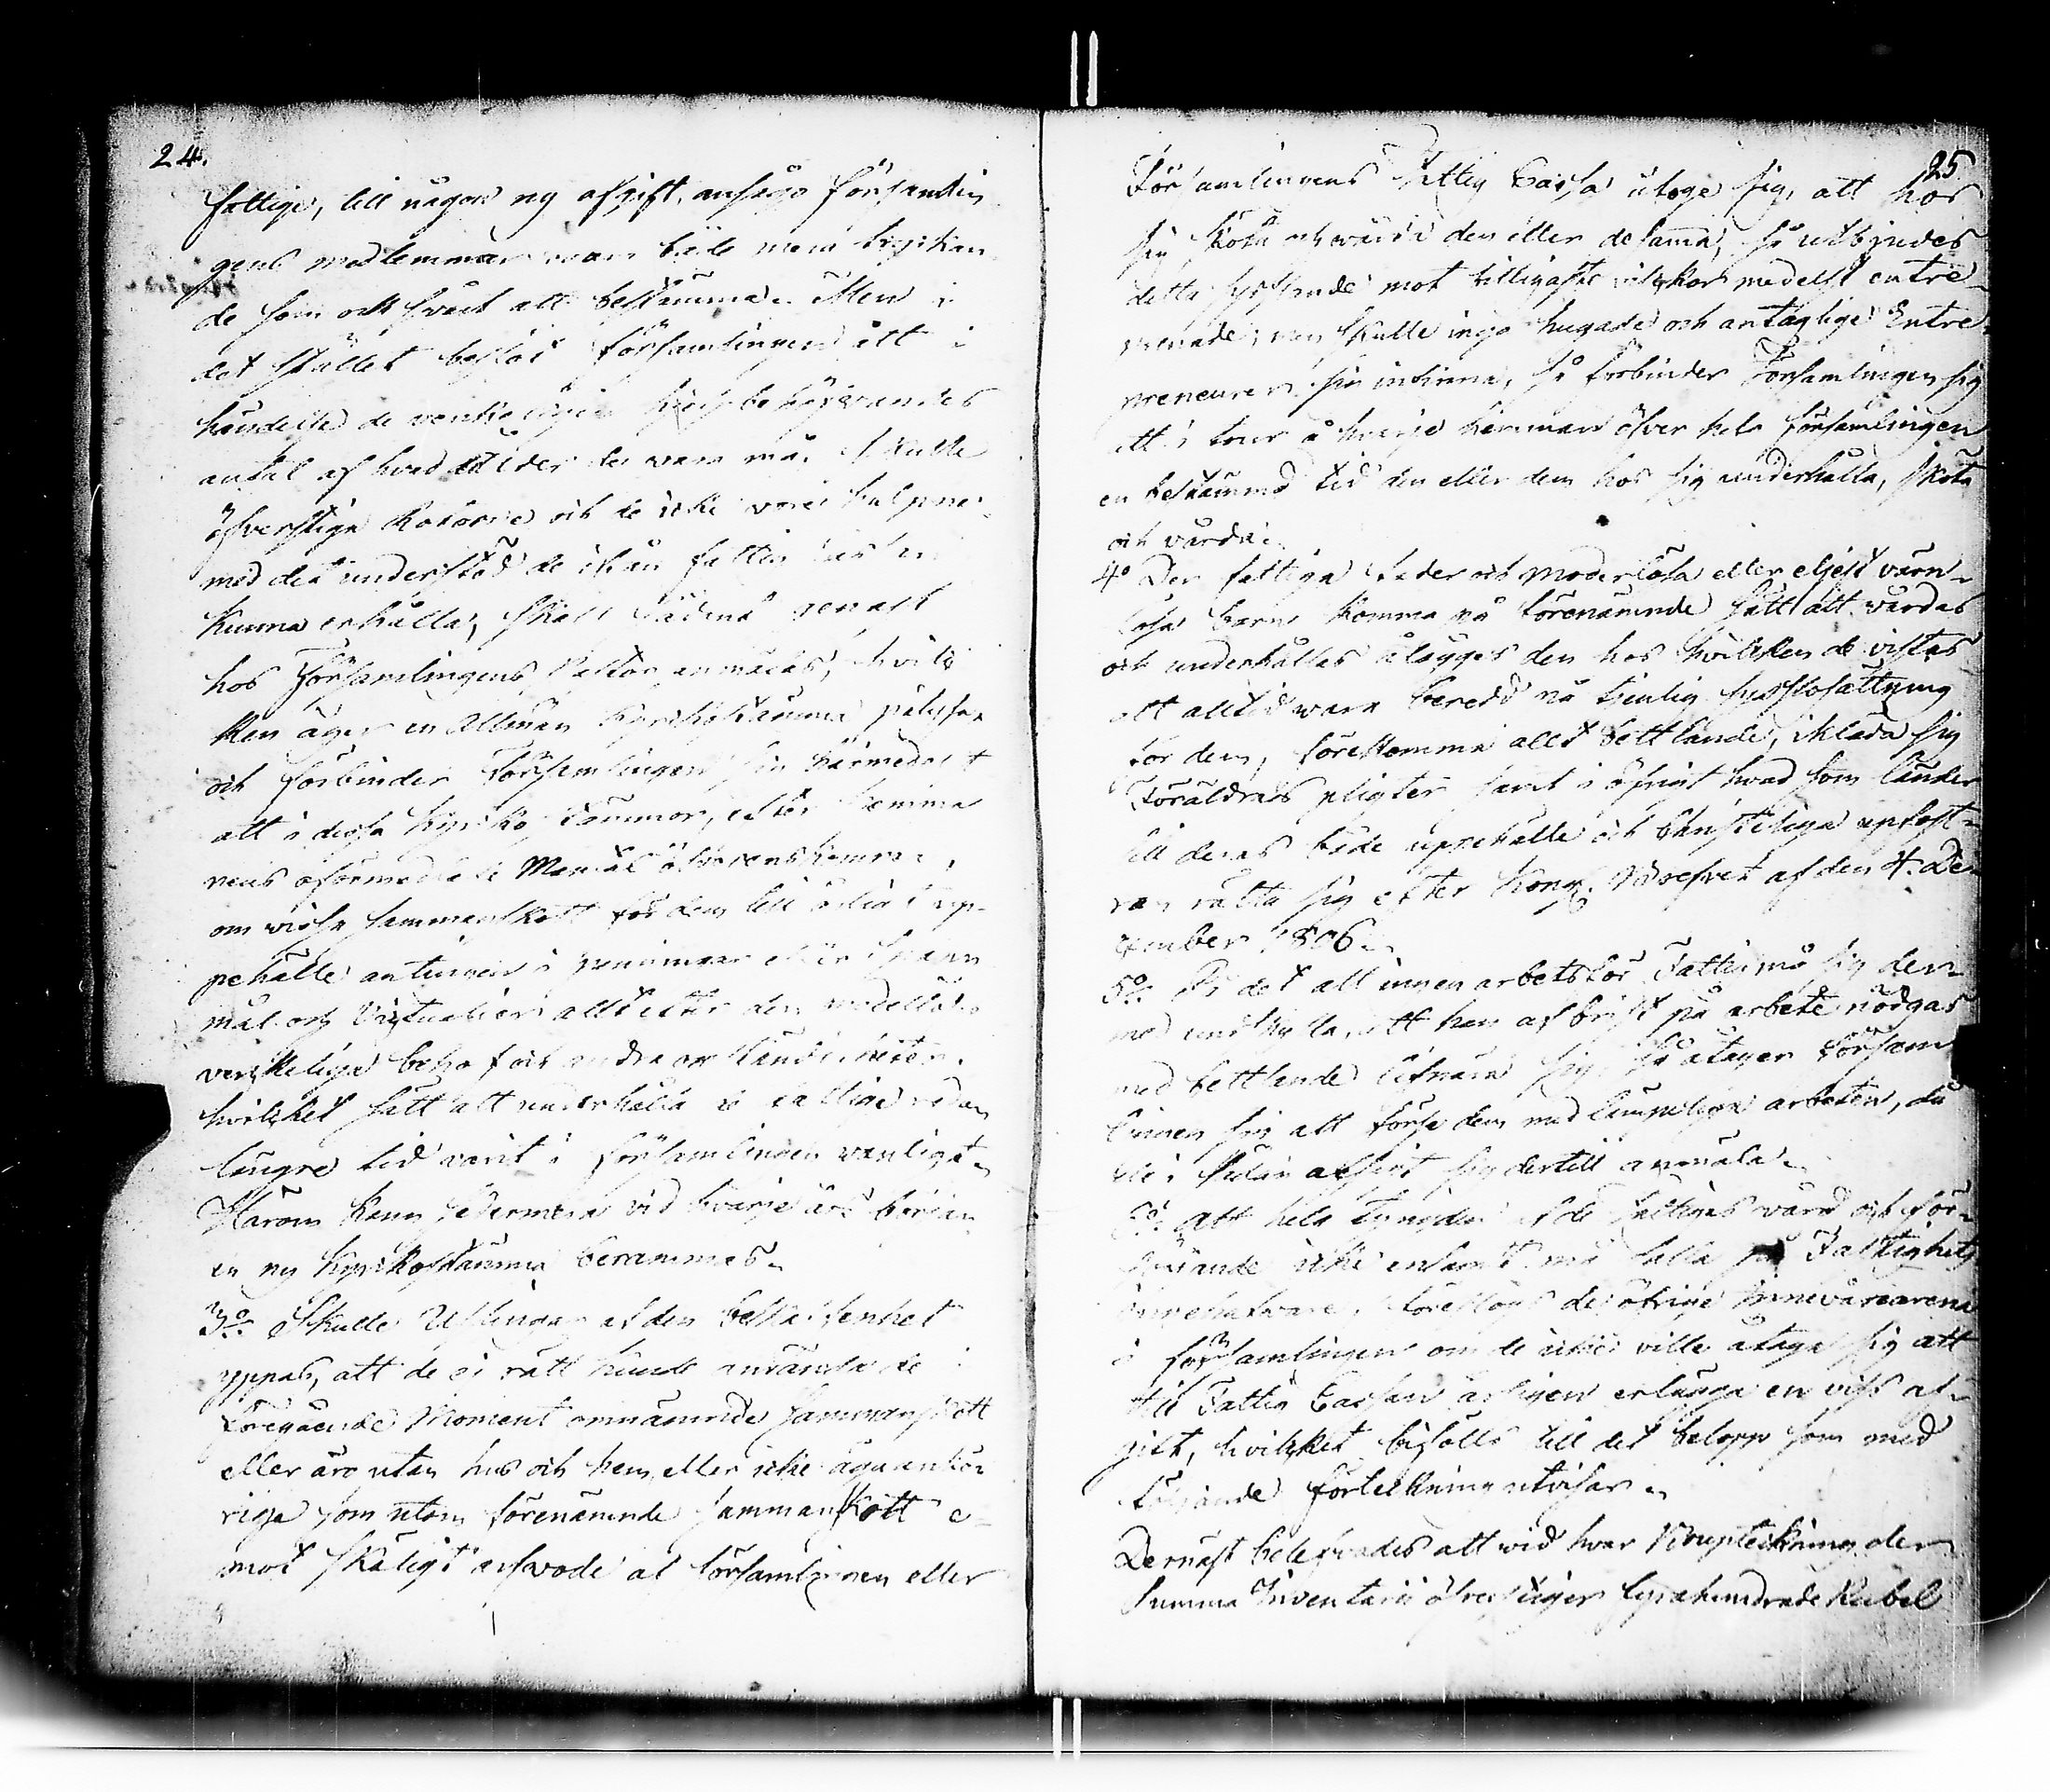 24.
fattige, till någon ny afgift, ansågo församlin
gens medlemmar vara både mera tryckan
de som ock svårt att bestämma. Men i
det stället beslöt församlingen att i
händelse de verkeligen hjelpbehöfvandes
antal af hvad ålder de vara må, skulle
öfverstiga Rotarne och de icke vore hulpne
med det understöd de ifrån fattig
kunna erhålla, skall sådant genast
hos Församlingens Pastor anmälas, hvil
ken äger en Allmän Kyrkostämma pålysa
och förbinder Församlingen sig härmedelst
att i dessa Kyrko stämmor, efter
om vissa sammanskott för dem till årligt up-
pehälle antingen i penningar eller Spann
mål och Victualier allt efter den medellöses
verkeliga behof och andra omständigheter,
hvilket sätt att underhålla de fattige redan
längre tid varit i församlingen vanligt.
Härom kann jemväl vid hvarje års början
en ny Kyrkostämma berammas.
3:o Skulle Uslingar af den beskaffenhet
yppas, att de ej rätt kunde använda de i
föregående Moment omnämnde sammanskott
eller äro utan hus och hem, eller icke äga anhö
riga som utom förenämnde sammanskott e-
mot skäligt arfvode af församlingen eller
25
Församlingens Fattig Cassa åtoge sig, att hos
sig sköta och vårda den eller desamma, så utbjudes
detta hysande mot billigaste vilkor medelst entre-
prenade; men skulle inga hugade och antaglige Entre-
preneurer sig infinna, så förbinder Församlingen sig
att i tour å hvarje hemman öfver hela församlingen
en bestämmd tid den eller dem hos sig underhålla, sköta
och vårda.
4:o Der fattiga fader och moderlösa eller eljest värn-
lösa barn komma på förenämnde sätt att vårdas
och underhållas ålägges den hos hvilken de vistas
att alltid vara beredd på tjenlig sysslosättning
för dem, förekomma allt bettlande, ikläda sig
Föräldrars pligter samt i öfrigt hvad som länder
till deras både uppehälle och Christeliga upfost-
ran rätta sig efter Kongl. Brefvet af den 4. De-
cember 1806.
5:o På det att ingen arbetsför Fattig må sig der
med undskylla, att han af brist på arbete nödgas
med bettlande lifnära sig, så åtager Försam
lingen sig att förse dem med lämpeliga arbeten, då
de i sådan afsigt sig dertill anmäla.
6:o Att hela tyngden af de fattigas vård och för-
sörjande icke ensamt må falla på Fastighets
innehafvare, föreslogs de öfrige Innevånarena
i församlingen om de icke ville åtaga sig att
till Fattig Cassan årligen erlägga en viss af-
gift, hvilket bifölls till det belopp som med
följande förteckning utvisar.
Dernäst belefvades att vid hvar Boupteckning der
Summa Inventarii öfverstiger fyrahundrade Rubel